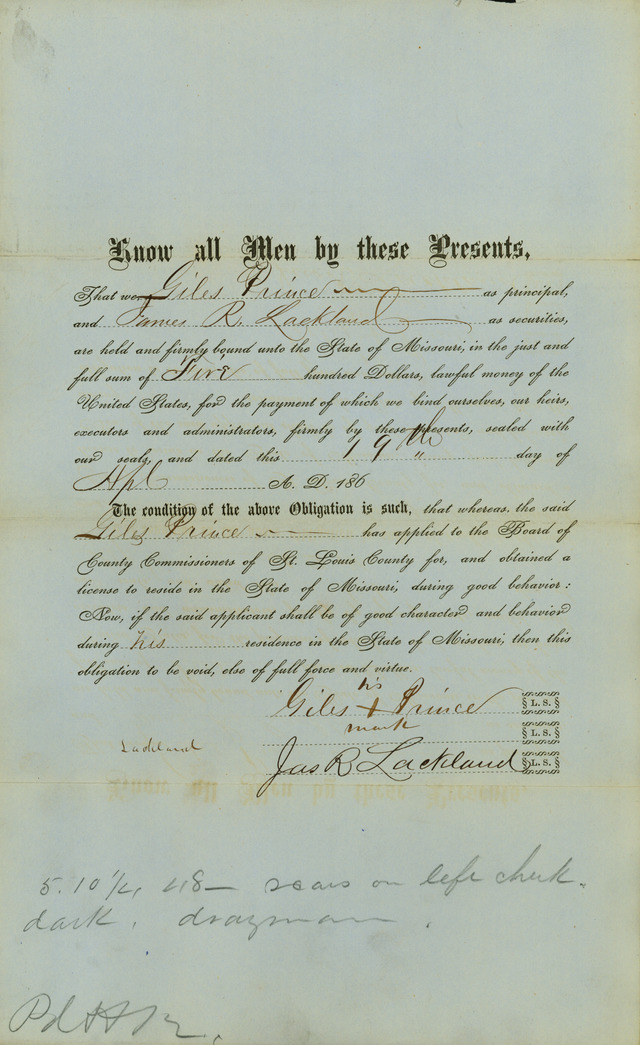 Know all Men by these Presents,
That we Giles Prince as principal,
and James R. Lackland as securities,
are held and firmly bound unto the State of Missouri, in the just and
full sum of Five hundred Dollars, lawful money of the
United States, for the payment of which we bind ourselves, our heirs,
executors and administrators, firmly by these presents, sealed with
our seals, and dated this 19th day of
Apl A. D. 186
The condition of the above Obligation is such, that whereas, the said
Giles Prince has applied to the Board of
County Commissioners of St. Louis County for, and obtained a
license to reside in the State of Missouri, during good behavior:
Now, if the said applicant shall be of good character and behavior
during his residence in the State of Missouri, then this
obligation to be void, else of full force and virtue.
his
Giles + Prince L. S.
mark
L. S.
Lackland
Jas R Lackland L. S.
5.10 1/4, 48 — scars on left cheek.
dark. drayman.